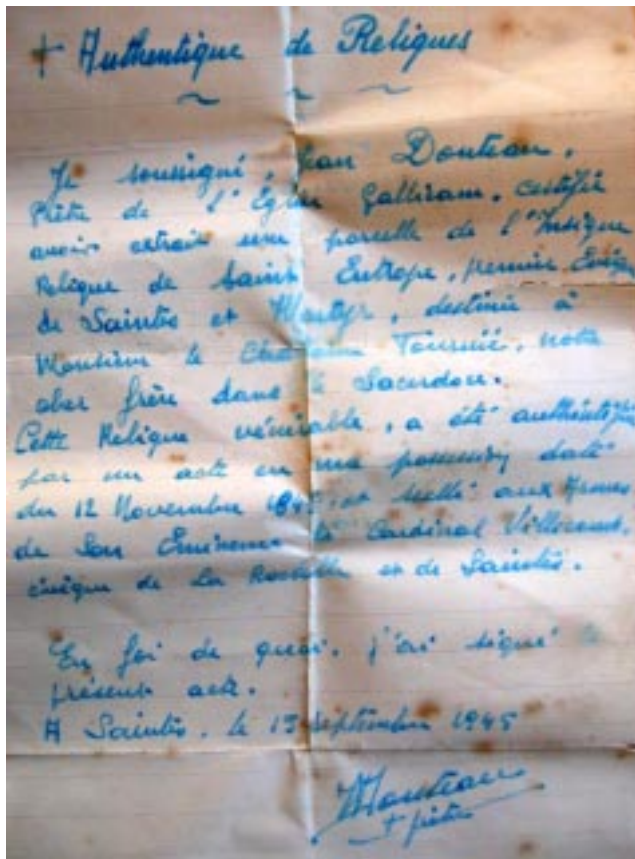 + Authentique de Reliques
Je soussigné, Jean Douteau,
Prêtre de l'Église Gallicane, certifie
avoir extrait une parcelle de l'Insigne
Relique de Saint Eutrope, premier Évêque
de Saintes et Martyr, destinée à
Monsieur le Chanoine, notre
cher frère dans le Sacerdoce.
Cette Relique vénérable, a été authentifiée
par un acte en ma possession daté
du 12 Novembre et scellé aux Armes
de Son Éminence le Cardinal Villecourt,
évêque de La Rochelle et de Saintes.
En foi de quoi, j'ai signé le
présent acte.
A Saintes, le 13 septembre 1945
+ prêtre